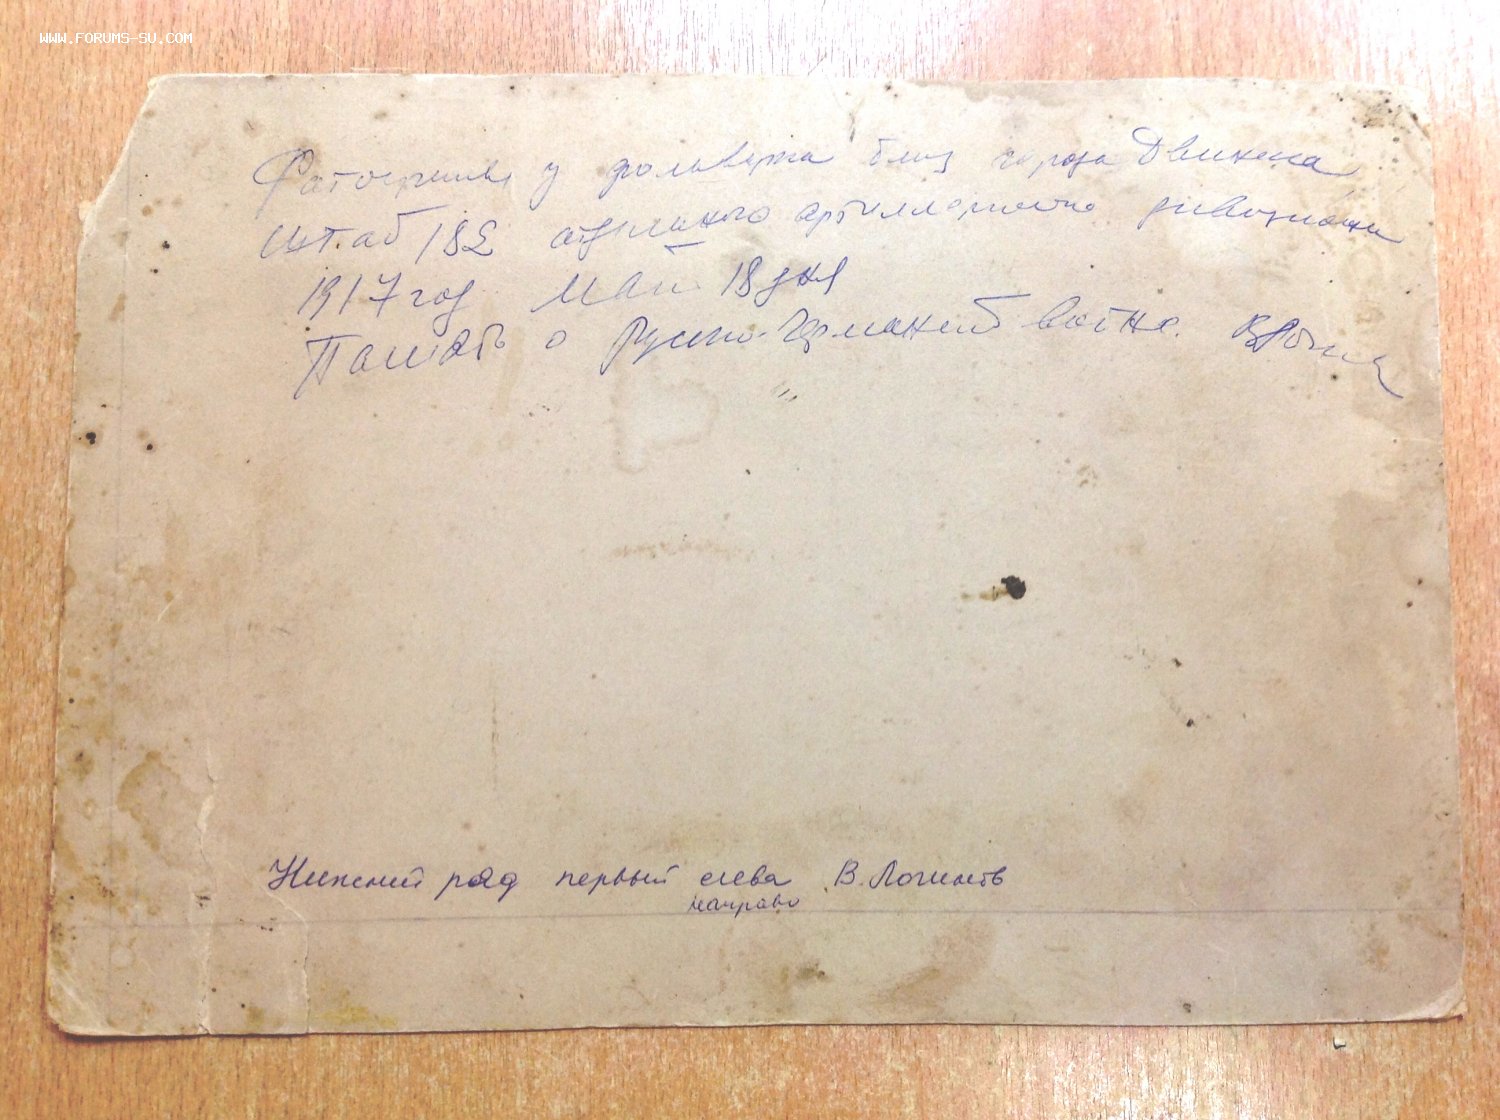 WWW.FORUMS-SU.COM
у фольварка близ города Двинска
Штаб 182 отдельного артиллерийского дивизиона
1917 год Май 18 дня
Память о Русско-Германской войне.
Нижний ряд первый слева В. Логинов
направо